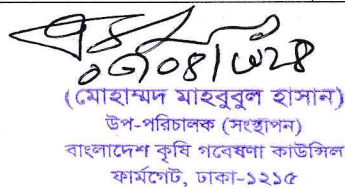 (মোহাম্মদ মাহবুবুল হাসান)
উপ-পরিচালক (সংস্থাপন)
বাংলাদেশ কৃষি গবেষণা কাউন্সিল
ফার্মগেট, ঢাকা-১২১৫